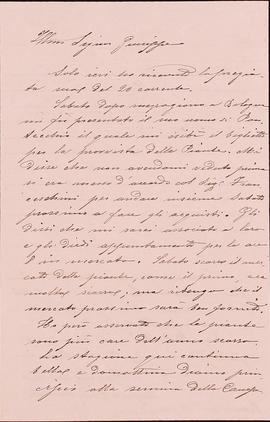 Illmo Signor Giuseppe
Solo ieri ho ricevuto la pregia
ta sua del 20 corrente.
Sabato dopo mezzogiorno a Bologna
mi fu presentato il suo uomo di
Secchio il quale mi esibì il biglietto
per la provvista delle Piante. Mi
disse che non avendomi veduto prima
si era messo d'accordo col Sig. Fran
ceschini per andare insieme Sabato
prossimo a fare gli acquisti. Gli
dissi che mi sarei associato a loro
e gli diedi appuntamento per le ore
8 in mercato. Sabato scorso il mer
cato delle piante, come il primo, era
molto scarso, ma ritengo che il
mercato prossimo sarà ben fornito.
Ho però osservato che le piante
sono più care dell'anno scorso.
La stagione qui continua
bella e domattina diamo prin
cipio alla semina della Canapa